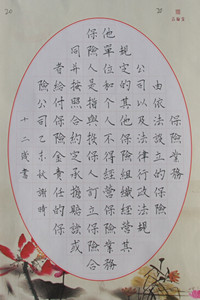 保險業務
由依法設立的保險
公司以及法律行政法規
規定的其他保險組織經營其
他單位和個人不得經營保險業務
保險人是指與投保人訂立保險合
同并按照合約定承擔賠款或
者給付保險金責任的保
險公司己未秋謝時
十二歲書